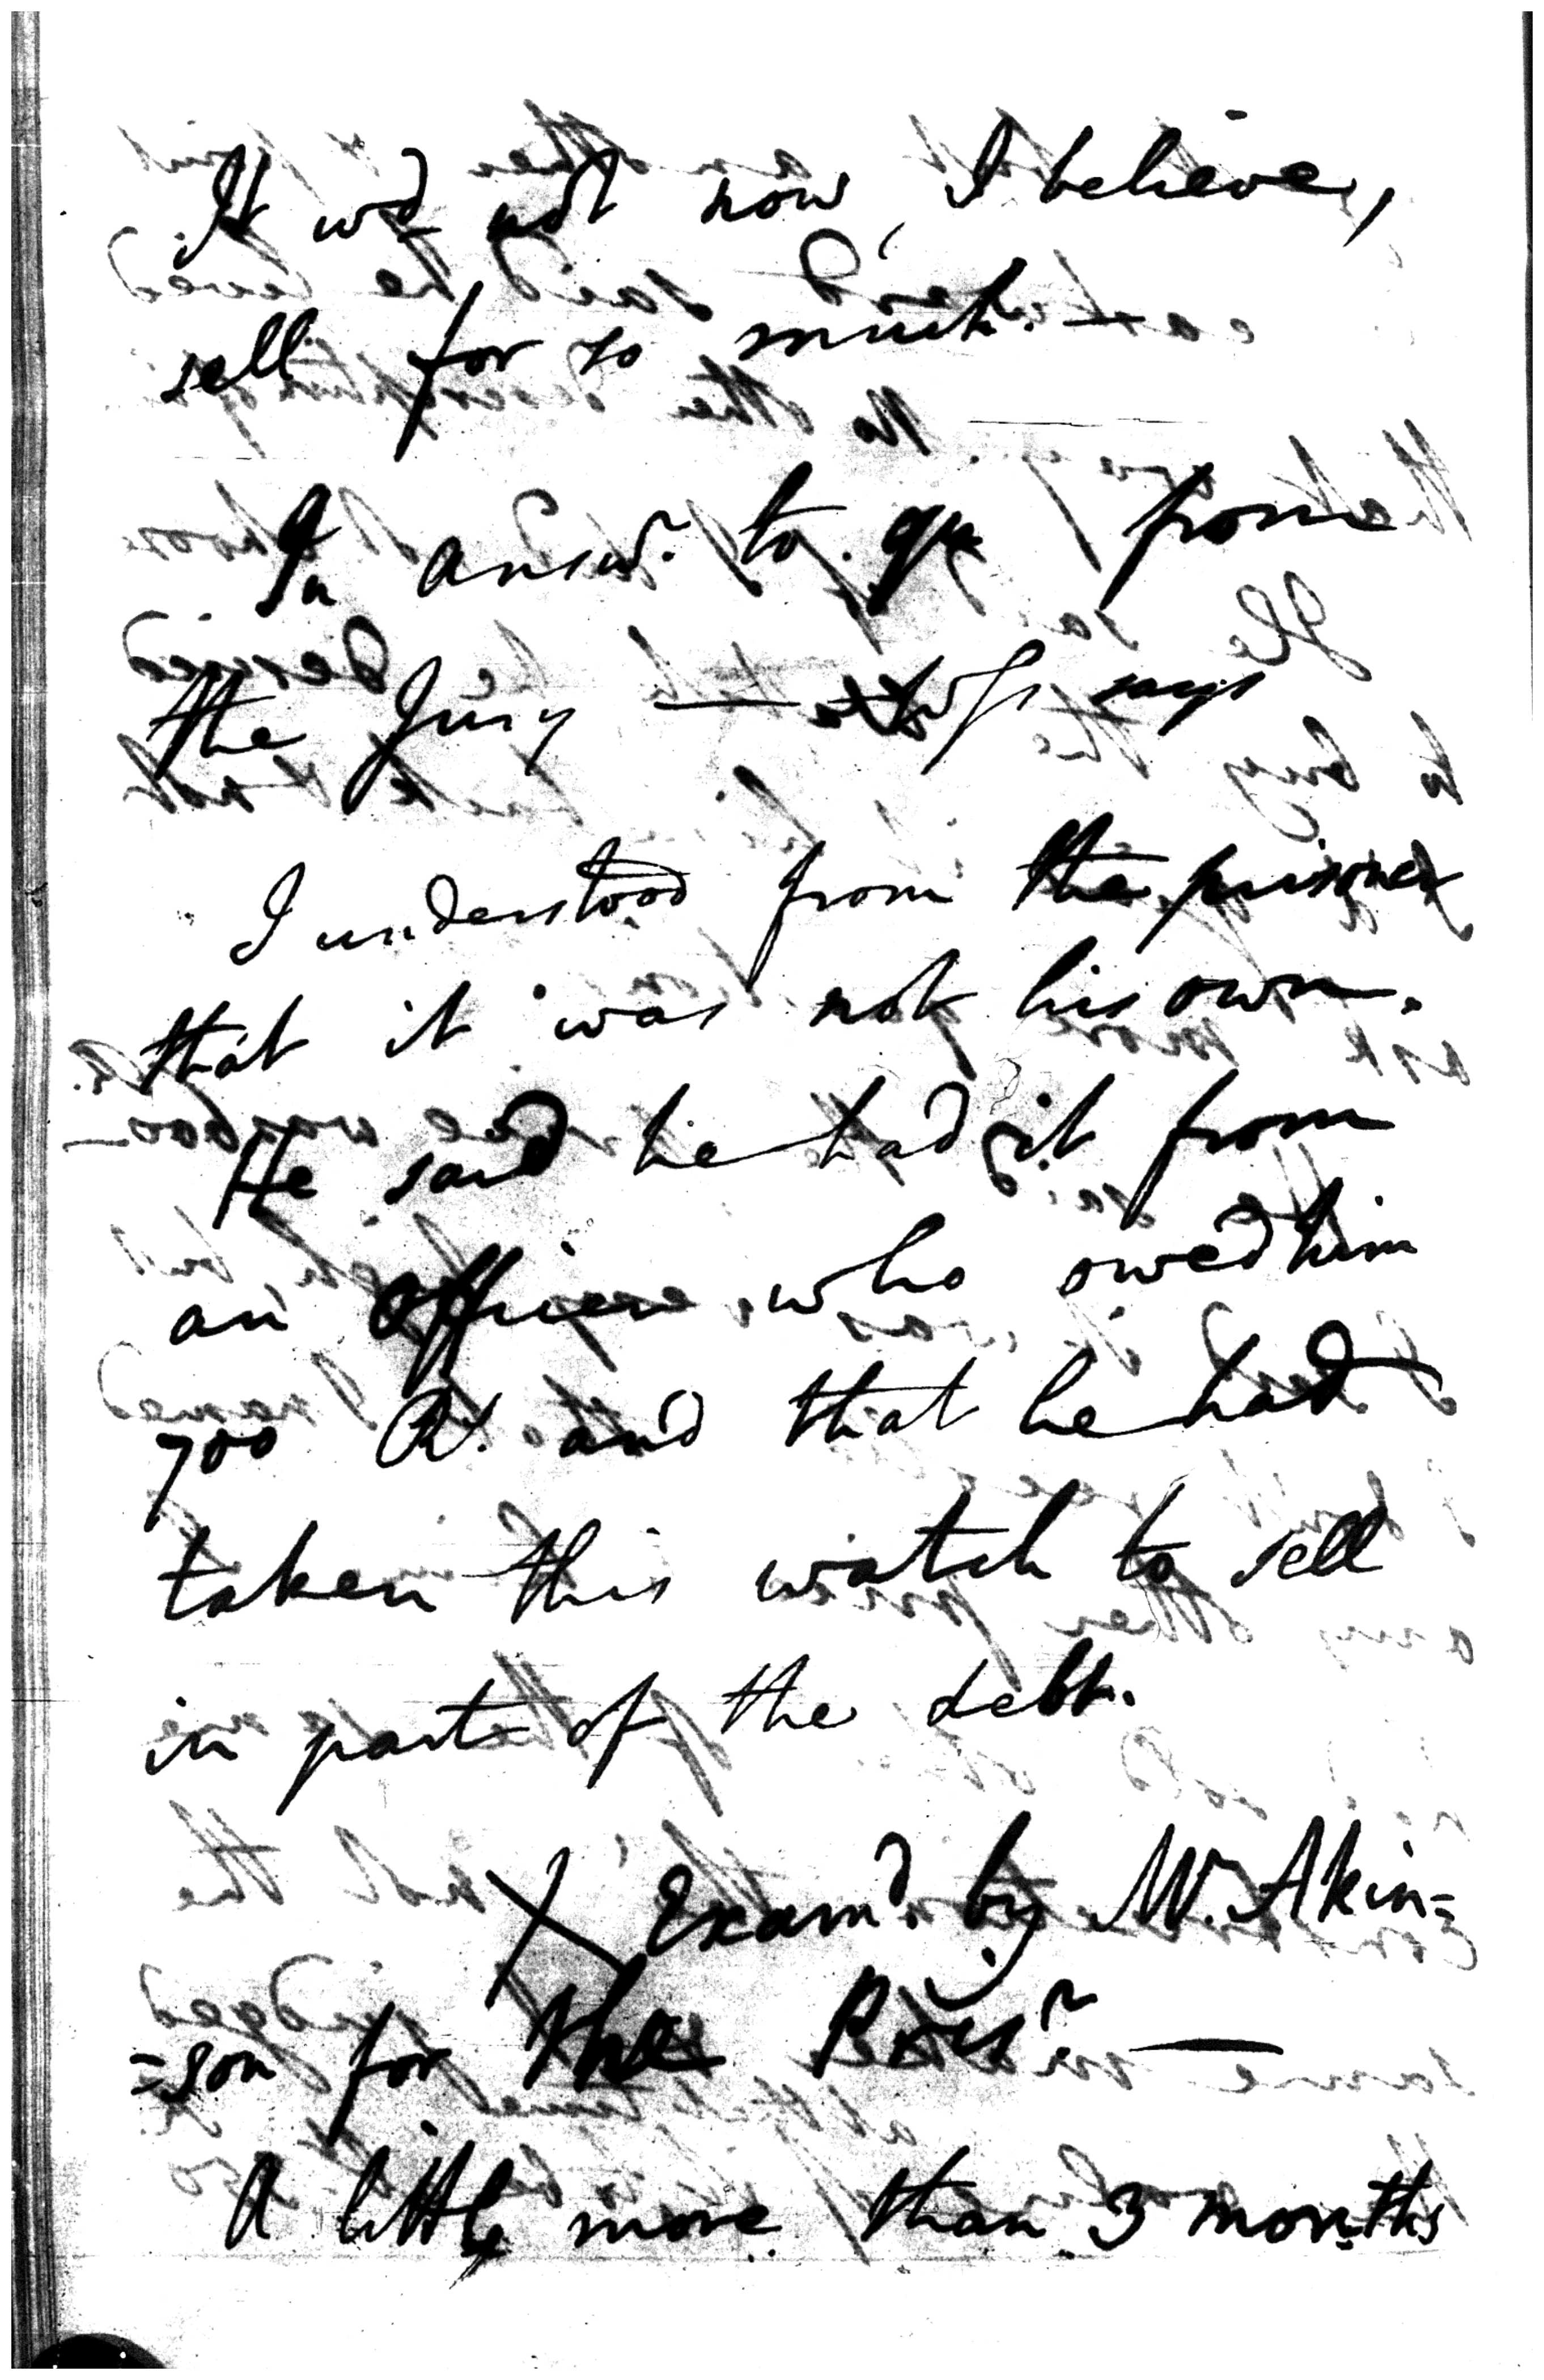 It wd not now, I believe,
sell for so much. —
In answr. to qu from
the Jury — says
I understood from the prisoner
that it was not his own.
He said he had it from
an officer who owed him
700 Rs. and that he had
taken this watch to sell
in part of the debt.
X Examd. by Mr. Akin=
=son for the Prisr —
A little more than 3 months